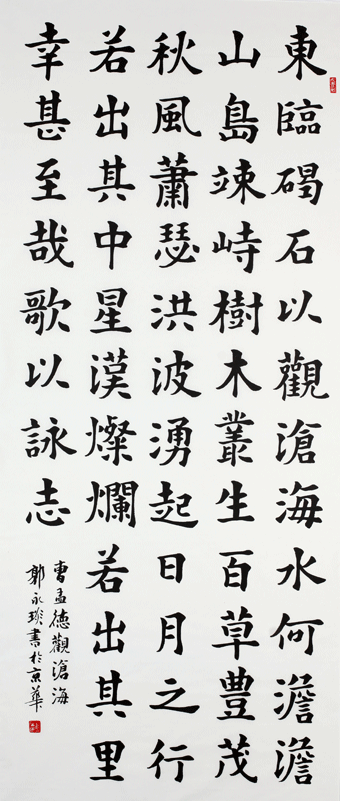 東臨碣石以觀滄海水何澹澹
山島竦峙樹木叢生百草豊茂
秋風蕭瑟洪波湧起日月之行
若出其中星漢燦爛若出其里
幸甚至哉歌以詠志
曹孟德觀滄海
永琰書於京華